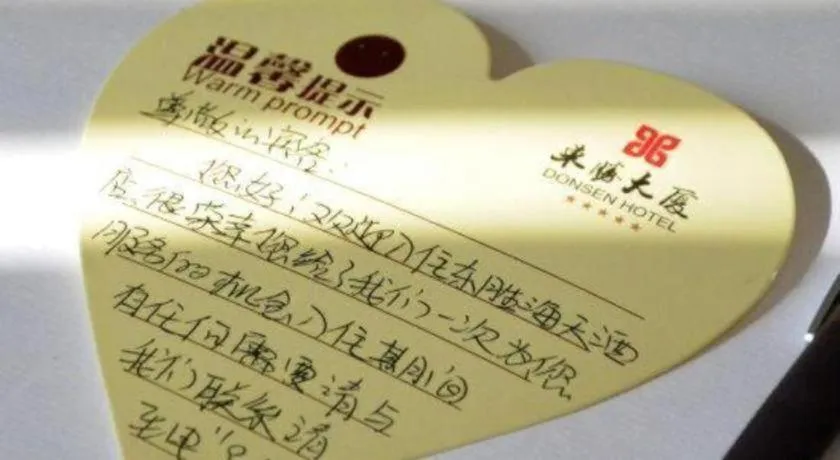 温馨提示
Warm prompt
东胜大厦
DONSEN HOTEL
尊敬的宾客:
您好!欢迎入住东胜海天酒
店,很荣幸您给了我们一次为您
服务的机会,入住其期间
有任何需要请与
我们联系请
致电"8